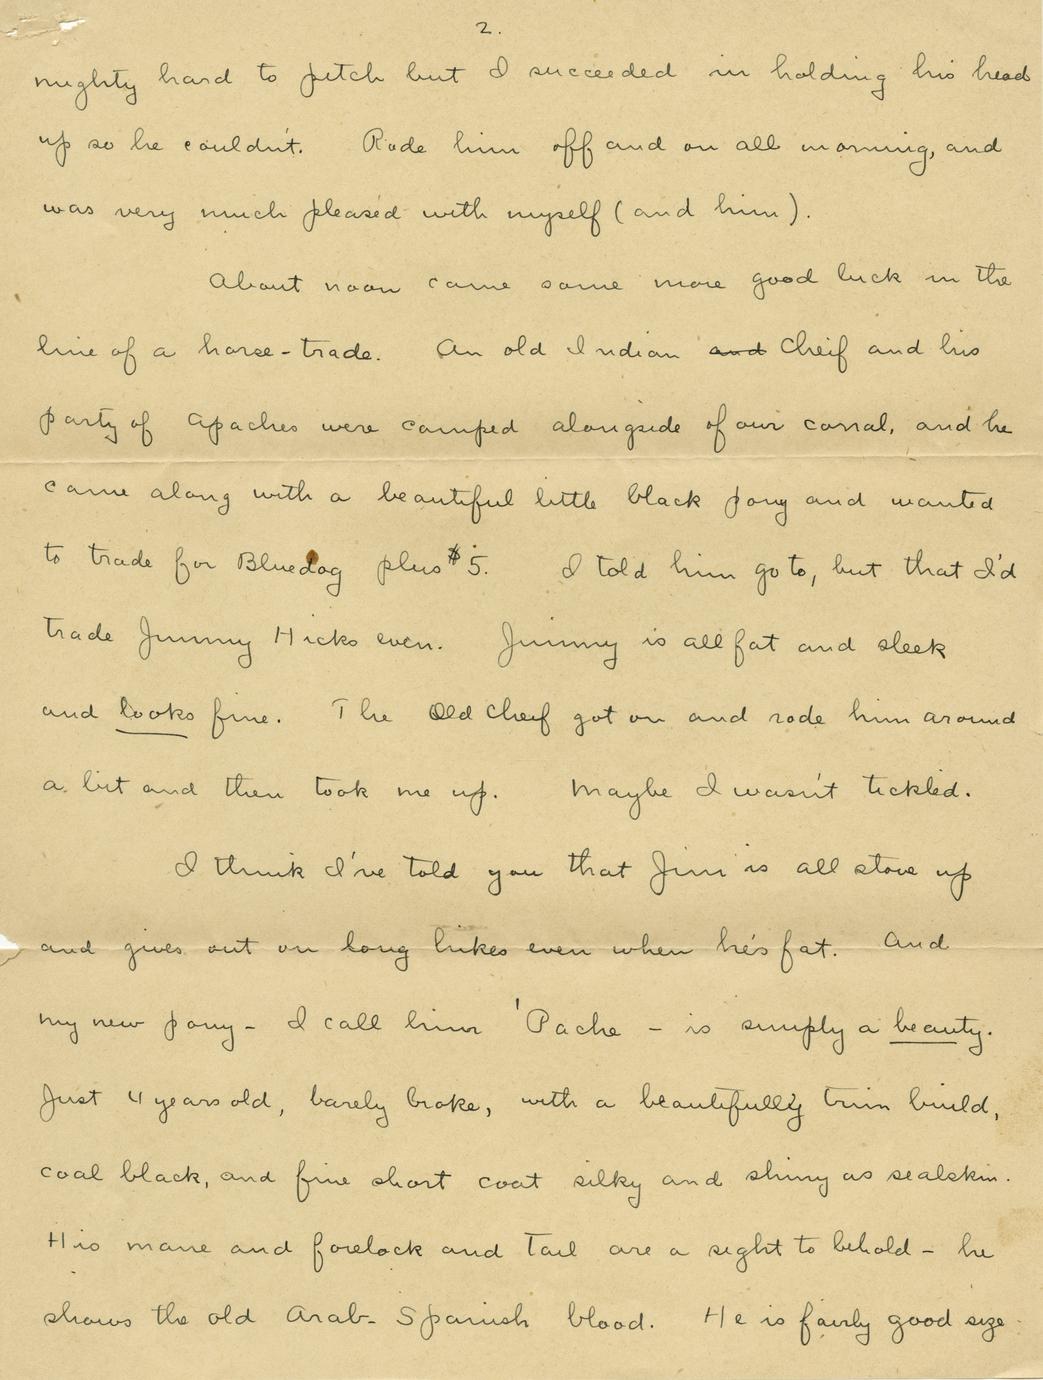 2.
mighty hard to pitch but I succeeded in holding his head
up so he couldn't. Rode him off and on all morning, and
was very much pleased with myself (and him).
About noon came some more good luck in the
line of a horse-trade. An old Indian and Cheif and his
party of Apaches were camped alongside of our corral, and he
came along with a beautiful little black pony and wanted
to trade for Bluedog plus $5. I told him go to, but that I'd
trade Jimmy Hicks even. Jimmy is all fat and sleek
and looks fine. The Old Cheif got on and rode him around
a bit and then took me up. Maybe I wasn't tickled.
I think I've told you that Jim is all stove up
and gives out on long hikes even when he's fat. And
my new pony - I call him 'Pache - is simply a beauty.
Just 4 years old, barely broke, with a beautifully trim build,
coal black, and fine short coat silky and shiny as sealskin.
His mane and forelock and tail are a sight to behold - he
shows the old Arab-Spanish blood. He is fairly good size